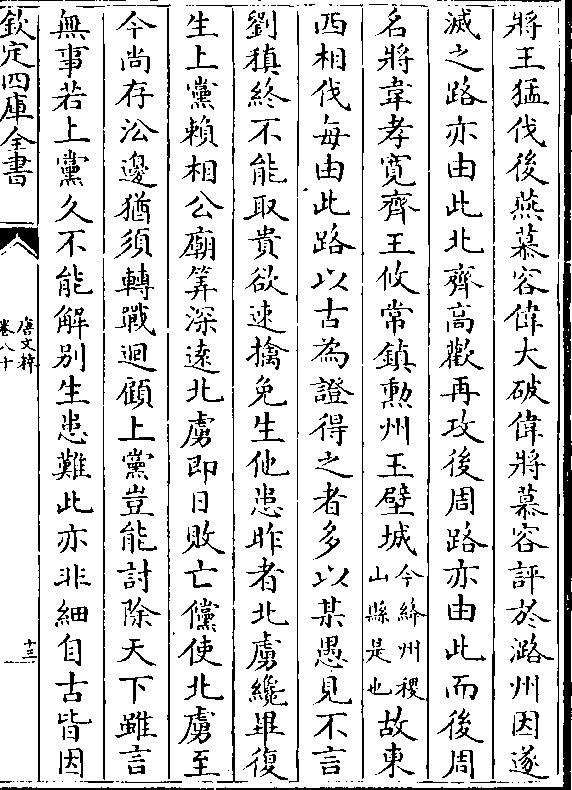 將王猛伐後燕慕容偉大破偉將慕容評於潞州因遂
滅之路亦由此北齊高歡再攻後周路亦由此而後周
名將韋孝寛齊王攸常鎮勲州玉壁城今絳州稷山縣是也故東
西相伐每由此路以古為證得之者多以某愚見不言
劉稹終不能取貴欲速擒免生他患昨者北虜纔畢復
生上黨賴相公廟筭深遠北虜即日敗亡儻使北虜至
今尚存沿邊猶須轉戰迴顧上黨豈能討除天下雖言
無事若上黨久不能解別生患難此亦非細自古皆因
欽定四庫全書
唐文粹
卷八十
十三